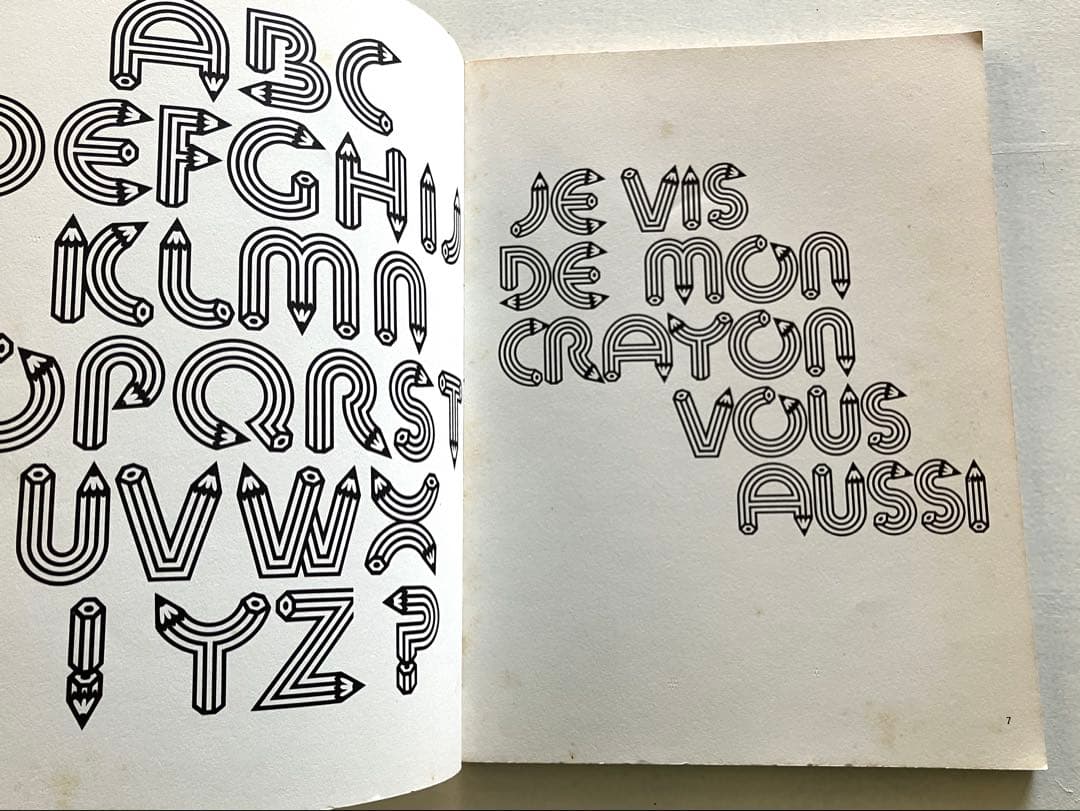 ABC
DEFGHIJ
KLMN
OPQRST
UVWX
! YZ ?
JE VIS
DE MON
CRAYON
VOUS
AUSSI
7